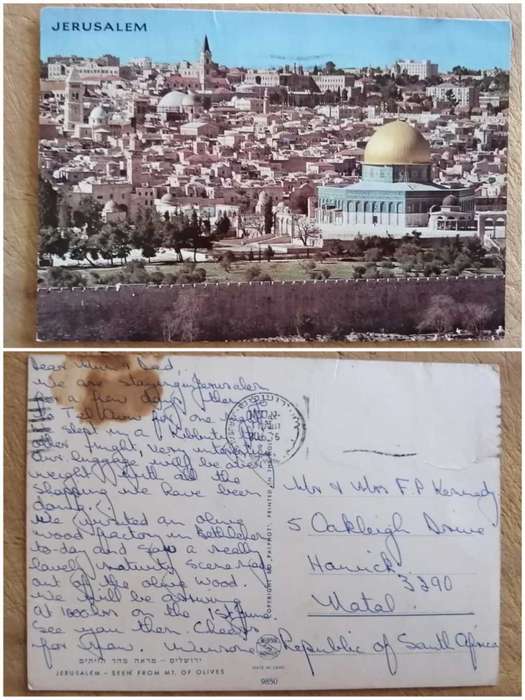 JERUSALEM
Dear Mum & Dad,
We are staying in Jerusalem
for a few days then go
to Tel Aviv for one night
We slept in a Kibbutz the
other night, very interesting
Our luggage will be over
weight with all the
shopping we have been
doing!
We visited an olive
wood factory in Bethlehem
to-day and saw a really
lovely nativity scene made
out of the olive wood.
We will be arriving
at 1600hrs on the 1st June.
See you then. Cheers
for now.
Mr & Mrs F.P Kennedy
5 Oakleigh Drive
Howick
3290
Natal
Republic of South Africa
ירושלים - מראה מהר הזיתים
JERUSALEM - SEEN FROM MT. OF OLIVES
MADE IN ISRAEL
9850